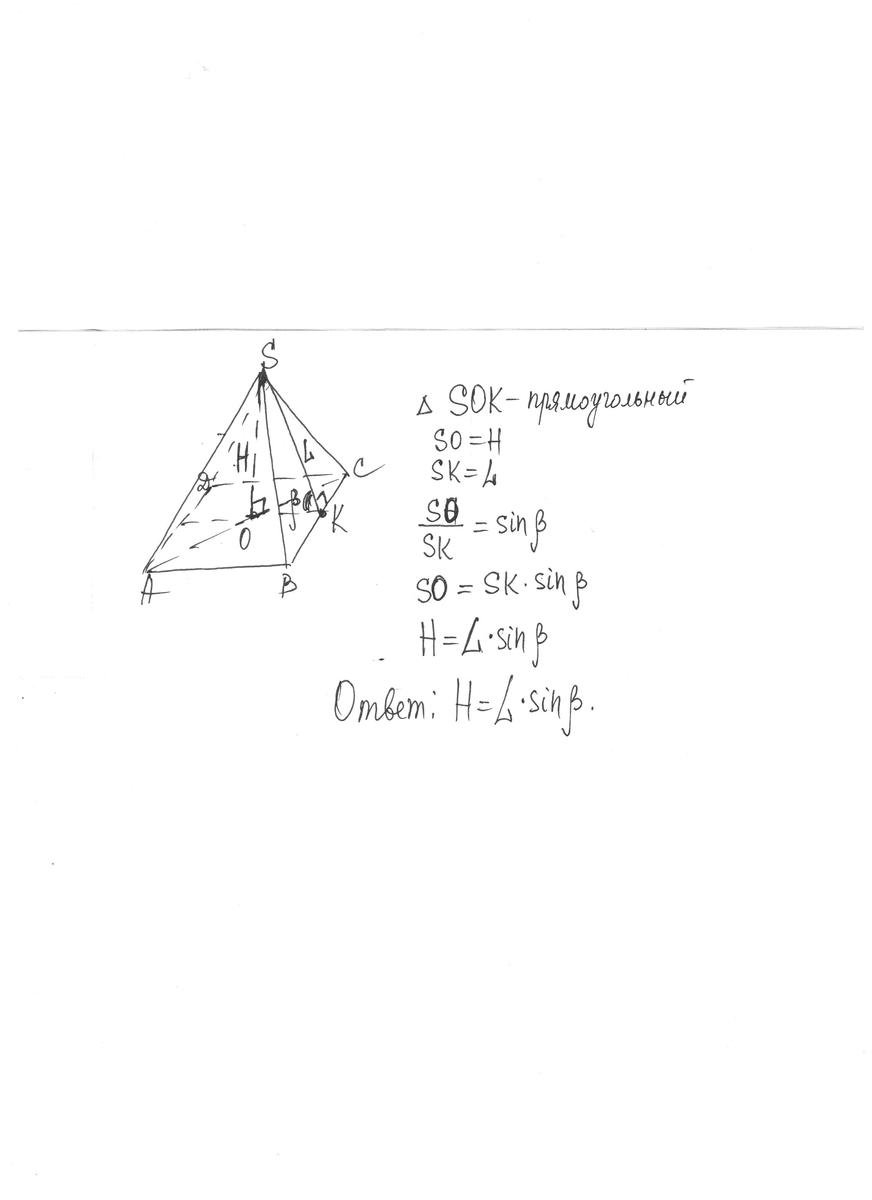 S
H
L
D
C
β
K
O
A
B
Δ SOK – прямоугольный
SO = H
SK = L
SO/SK = sin β
SO = SK · sin β
H = L · sin β
Ответ: H = L · sin β.